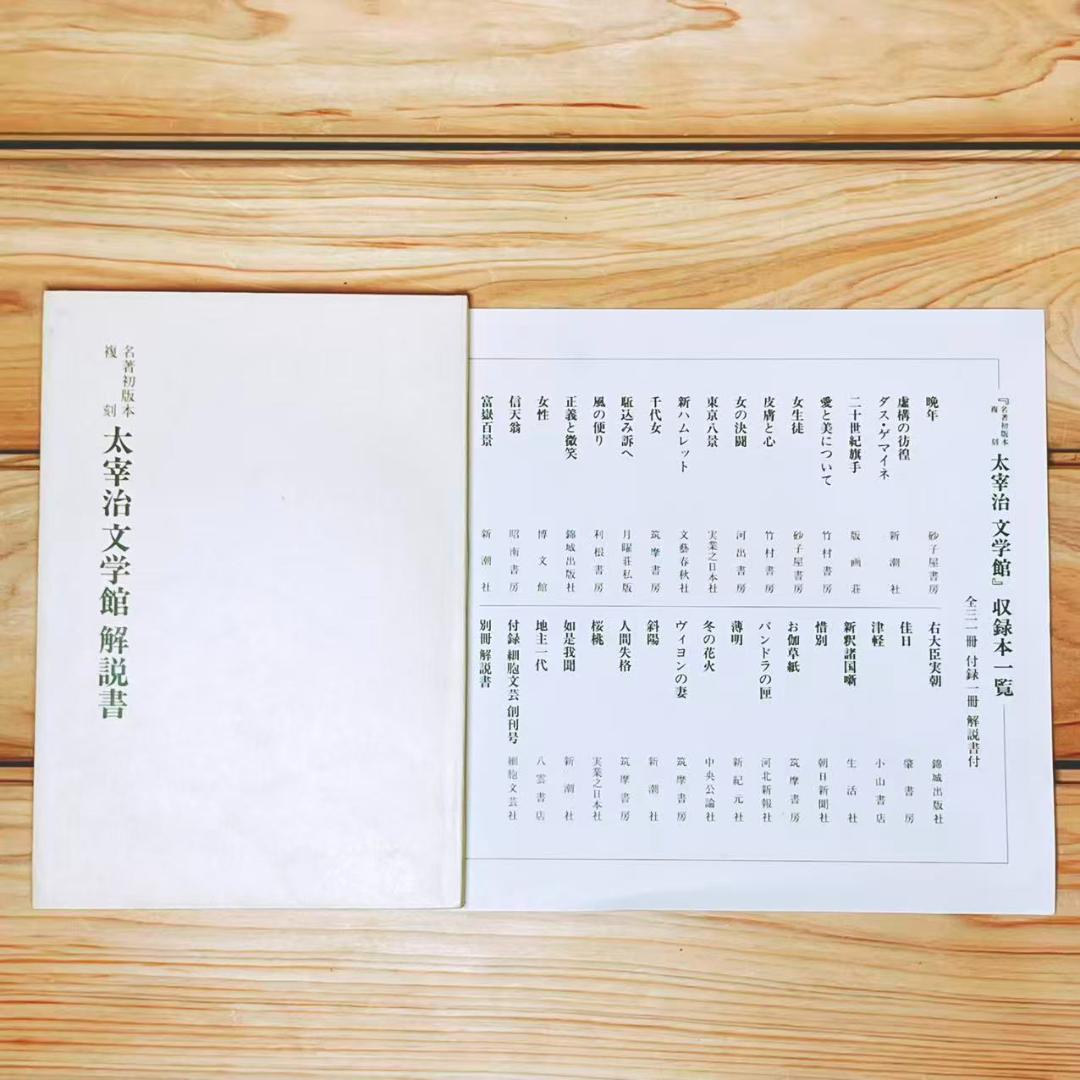 名著初版本
複刻
太宰治文学館 解説書
『名著初版本
複刻
太宰治 文学館』収録本一覧
全三一冊 付録一冊 解説書付
晩年 砂子屋書房
虚構の彷徨
ダス・ゲマイネ 新潮社
二十世紀旗手 版画荘
愛と美について 竹村書房
女生徒 砂子屋書房
皮膚と心 竹村書房
女の決闘 河出書房
東京八景 実業之日本社
新ハムレット 文藝春秋社
千代女 筑摩書房
駈込み訴へ 月曜荘私版
風の便り 利根書房
正義と微笑 錦城出版社
女性 博文館
信天翁 昭南書房
富嶽百景 新潮社
右大臣実朝 錦城出版社
佳日 肇書房
津軽 小山書店
新釈諸国噺 生活社
惜別 朝日新聞社
お伽草紙 筑摩書房
パンドラの匣 河北新報社
薄明 新紀元社
冬の花火 中央公論社
ヴィヨンの妻 筑摩書房
斜陽 新潮社
人間失格 筑摩書房
桜桃 実業之日本社
如是我聞 新潮社
地主一代 八雲書店
付録 細胞文芸 創刊号 細胞文芸社
別冊 解説書